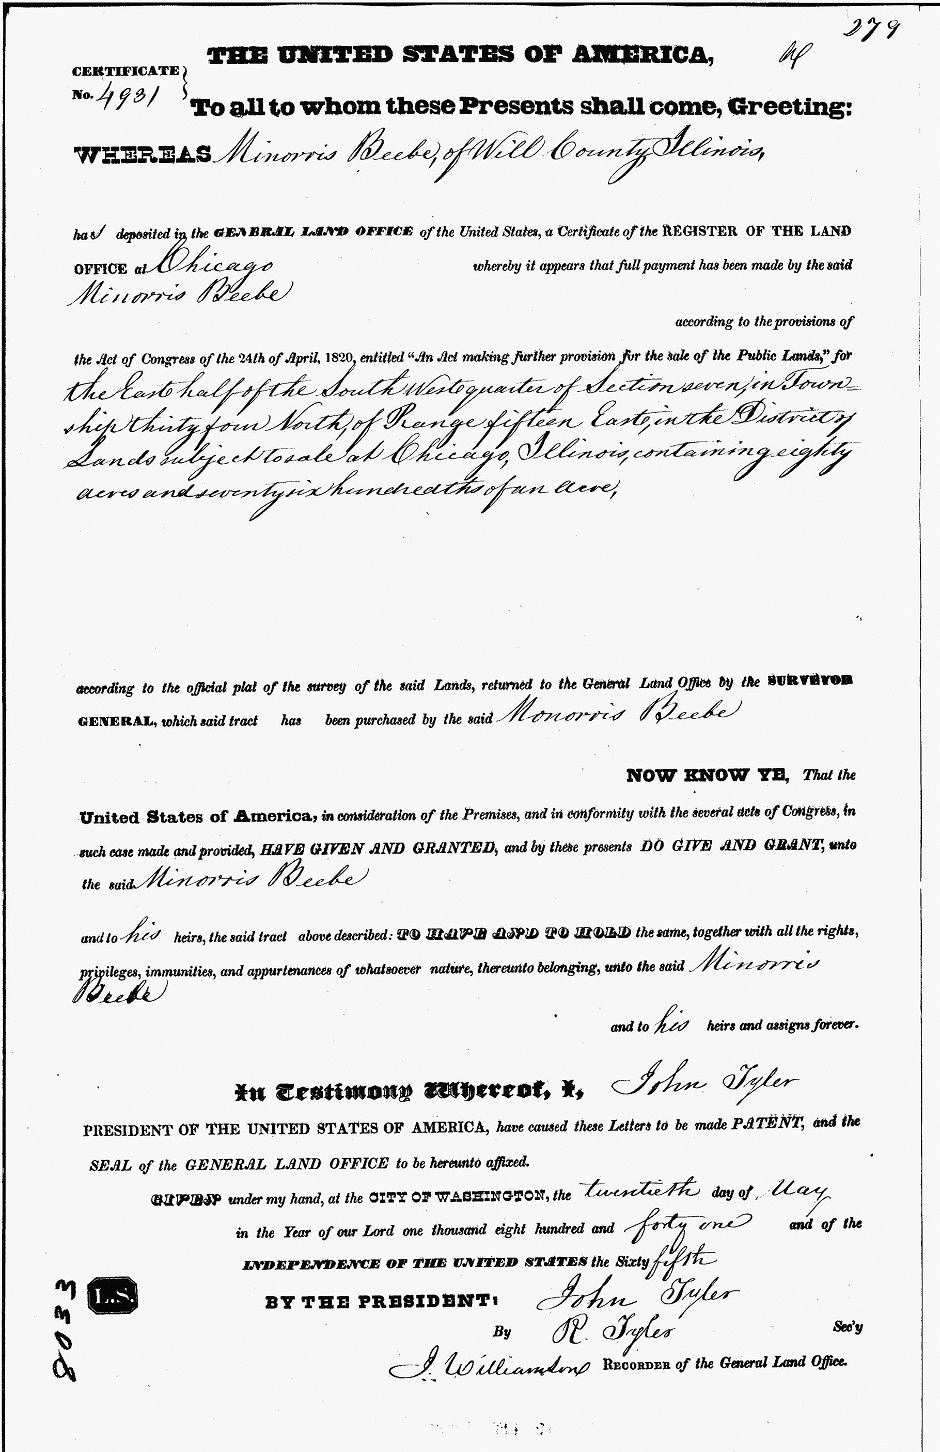 279
THE UNITED STATES OF AMERICA,
CERTIFICATE
No. 4931
To all to whom these Presents shall come, Greeting:
WHEREAS Minorris Beebe, of Will County, Illinois,
has deposited in the GENERAL LAND OFFICE of the United States, a Certificate of the REGISTER OF THE LAND
OFFICE at Chicago whereby it appears that full payment has been made by the said
Minorris Beebe
according to the provisions of
the Act of Congress of the 24th of April, 1820, entitled "An Act making further provision for the sale of the Public Lands," for
the East half of the South West quarter of Section seven, in Town=
ship thirty four North, of Range fifteen East, in the District of
Lands subject to sale at Chicago, Illinois, containing eighty
acres and seventy six hundredths of an acre,
according to the official plat of the survey of the said Lands, returned to the General Land Office by the SURVEYOR
GENERAL, which said tract has been purchased by the said Monorris Beebe
NOW KNOW YE, That the
United States of America, in consideration of the Premises, and in conformity with the several acts of Congress, in
such case made and provided, HAVE GIVEN AND GRANTED, and by these presents DO GIVE AND GRANT, unto
the said Minorris Beebe
and to his heirs, the said tract above described: TO HAVE AND TO HOLD the same, together with all the rights,
privileges, immunities, and appurtenances of whatsoever nature, thereunto belonging, unto the said Minorris
Beebe
and to his heirs and assigns forever.
In Testimony Whereof, I, John Tyler
PRESIDENT OF THE UNITED STATES OF AMERICA, have caused these Letters to be made PATENT, and the
SEAL of the GENERAL LAND OFFICE to be hereunto affixed.
GIVEN under my hand, at the CITY OF WASHINGTON, the twentieth day of May
in the Year of our Lord one thousand eight hundred and forty one and of the
INDEPENDENCE OF THE UNITED STATES the Sixty fifth
L.S.
BY THE PRESIDENT: John Tyler
By R. Tyler Sec'y
J. Williamson RECORDER of the General Land Office.
8033